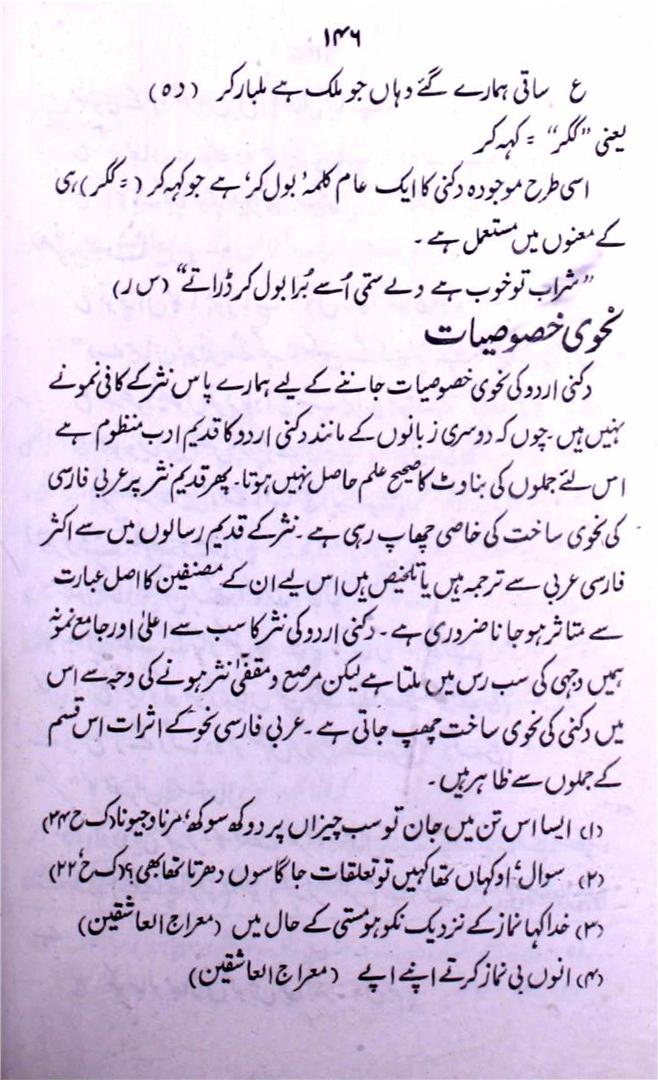 ۱۴۶
ع ساقی ہمارے گئے دہاں جو ملک ہے ملبار کر (د ۵)
یعنی ”ککر“ = کہہ کر
اسی طرح موجودہ دکنی کا ایک عام کلمہ ’بول کر‘ ہے جو کہہ کر (= ککر) ہی
کے معنوں میں مستعمل ہے ۔
”شراب تو خوب ہے دلے ستمی اُسے بُرا بول کر ڈراتے“ (س ر)
نحوی خصوصیات
دکنی اردو کی نحوی خصوصیات جاننے کے لیے ہمارے پاس نثر کے کافی نمونے
نہیں ہیں۔ چوں کہ دوسری زبانوں کے مانند دکنی اردو کا قدیم ادب منظوم ہے
اس لئے جملوں کی بناوٹ کا صحیح علم حاصل نہیں ہوتا۔ پھر قدیم نثر پر عربی فارسی
کی نحوی ساخت کی خاصی چھاپ رہی ہے ۔ نثر کے قدیم رسالوں میں سے اکثر
فارسی عربی سے ترجمہ ہیں یا تلخیص ہیں اس لیے ان کے مصنفین کا اصل عبارت
سے متاثر ہو جانا ضروری ہے ۔ دکنی اردو کی نثر کا سب سے اعلیٰ اور جامع نمونہ
ہمیں وجہی کی سب رس میں ملتا ہے لیکن مرصع و مقفیٰ نثر ہونے کی وجہ سے اس
میں دکنی کی نحوی ساخت چھپ جاتی ہے ۔ عربی فارسی نحو کے اثرات اس قسم
کے جملوں سے ظاہر ہیں۔
(۱) ایسا اس تن میں جان تو سب چیزاں پر دوکھ سوکھ، مرنا و جیونا (ک ح ۲۴)
(۲) سوال: او کہاں تھا کہیں تو تعلقات جاگا سوں دھرتا تھا بھی؟ (ک ح، ۲۲)
(۳) خدا کہا نماز کے نزدیک نکو ہو مستی کے حال میں (معراج العاشقین)
(۴) انوں بی نماز کرتے اپنے اپے (معراج العاشقین)